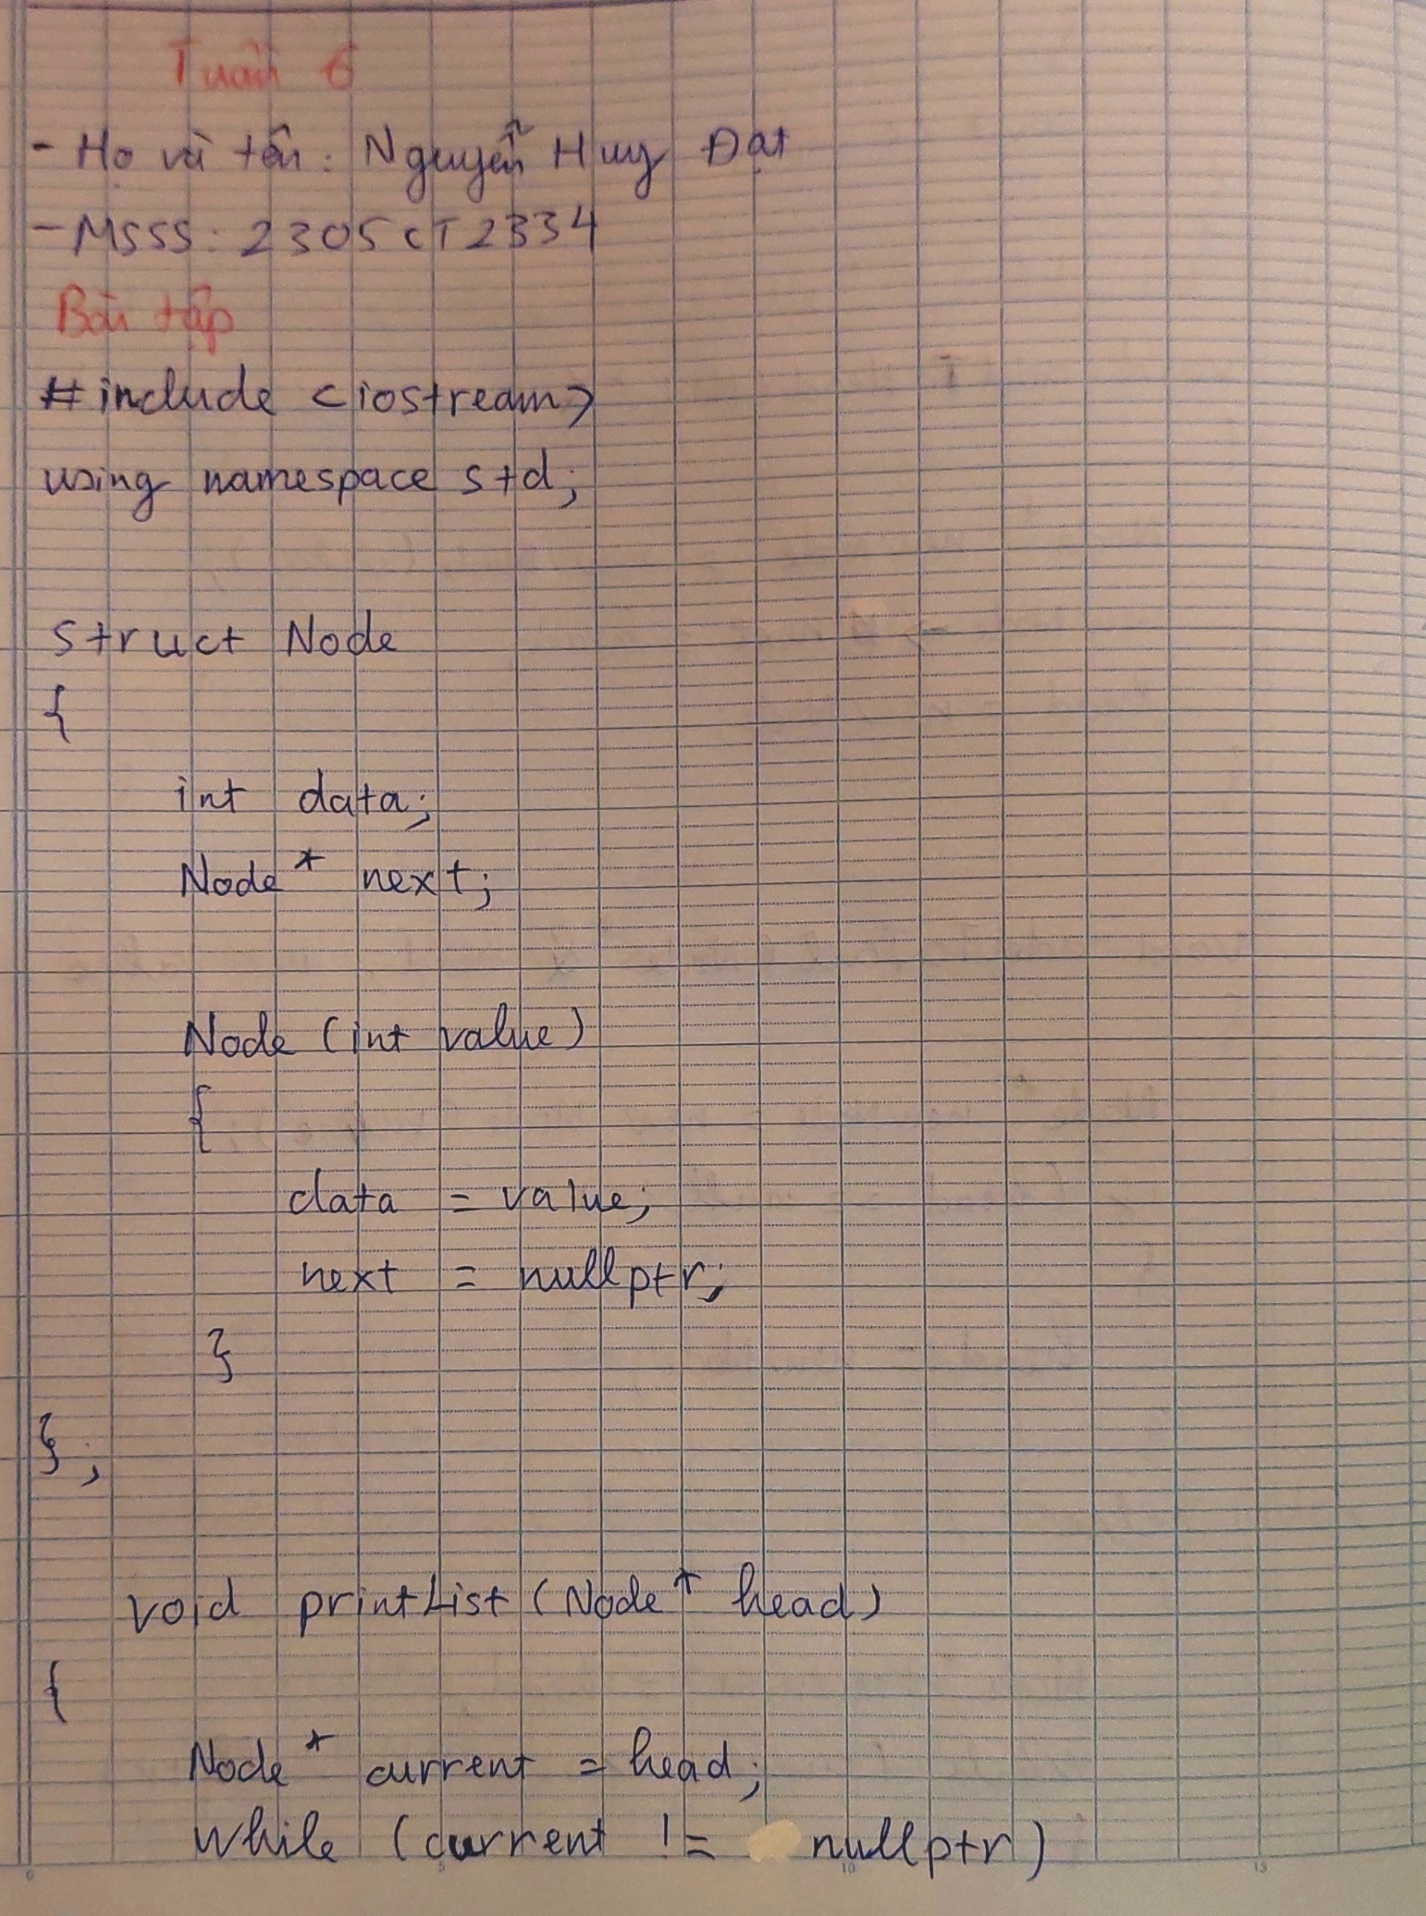 Tuần 6
- Họ và tên: Nguyễn Huy Đạt
- MSSS: 2305CT2334
Bài tập
#include <iostream>
using namespace std;
struct Node
{
int data;
Node* next;
Node (int value)
{
data = value;
next = nullptr;
}
};
void printList (Node* head)
{
Node* current = head;
while (current != nullptr)